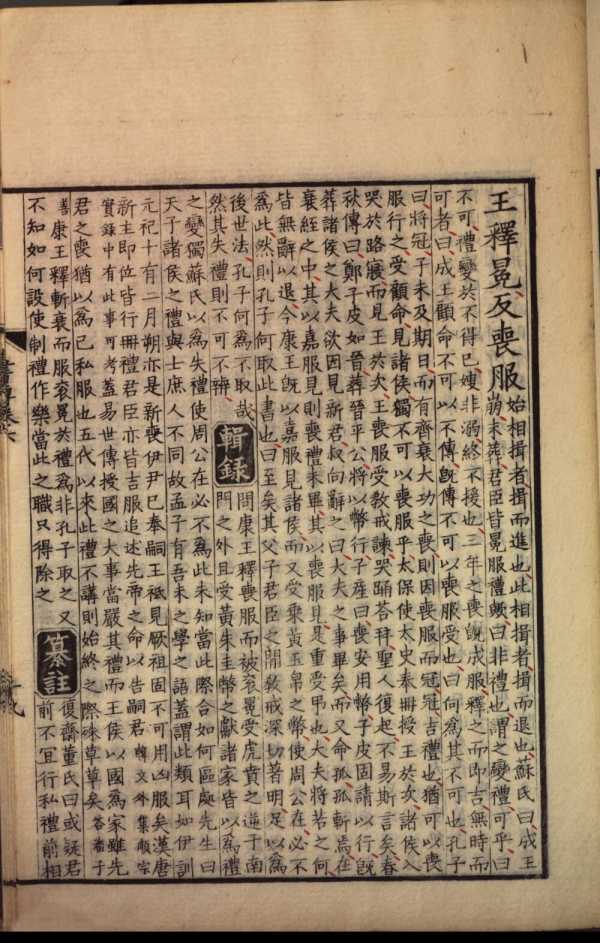 王釋冕反喪服
始相揖者揖而進也此相揖者揖而退也蘇氏曰成王
崩未葬君臣皆冕服禮歟曰非禮也謂之變禮可乎曰
不可禮變於不得已嫂非溺終不援也三年之喪既成服釋之而即吉無時而
可者曰成王顧命不可以不傳既傳不可以喪服受也曰何為其不可也孔子
曰將冠子未及期日而有齊衰大功之喪則因喪服而冠冠吉禮也猶可以喪
服行之受顧命見諸侯獨不可以喪服乎太保使太史奉冊授王於次諸侯入
哭於路寢而見王於次王喪服受教戒諫哭踊荅拜聖人復起不易斯言矣春
秋傳曰鄭子皮如晉葬晉平公將以幣行子產曰喪安用幣子皮固請以行既
葬諸侯之大夫欲因見新君叔向辭之曰大夫之事畢矣而又命孤孤斬焉在
衰絰之中其以嘉服見則喪禮未畢其以喪服見是重受弔也大夫將若之何
皆無辭以退今康王既以嘉服見諸侯而又受乘黃玉帛之幣使周公在必不
為此然則孔子何取此書也曰至矣其父子君臣之間教戒深切著明足以為
後世法孔子何為不取哉
然其失禮則不可不辨
輯錄
問康王釋喪服而被袞冕受虎賁之逆于南
門之外且受黃朱圭幣之獻諸家皆以為禮
之變獨蘇氏以為失禮使周公在必不為此未知當此際合如何區處先生曰
天子諸侯之禮與士庶人不同故孟子有吾未之學之語蓋謂此類耳如伊訓
元祀十有二月朔亦是新喪伊尹已奉嗣王祗見厥祖固不可用凶服矣漢唐
新主即位皆行冊禮君臣亦皆吉服追述先帝之命以告嗣君 韓文外集順宗
實錄中有此事可考蓋易世傳授國之大事當嚴其禮而王侯以國為家雖先
君之喪猶以為己私服也五代以來此禮不講則始終之際殊草草矣 答潘子
善 康王釋斬衰而服袞冕於禮為非孔子取之又
不知如何設使制禮作樂當此之職只得除之
纂註
復齋董氏曰或疑君
前不宜行私禮前相